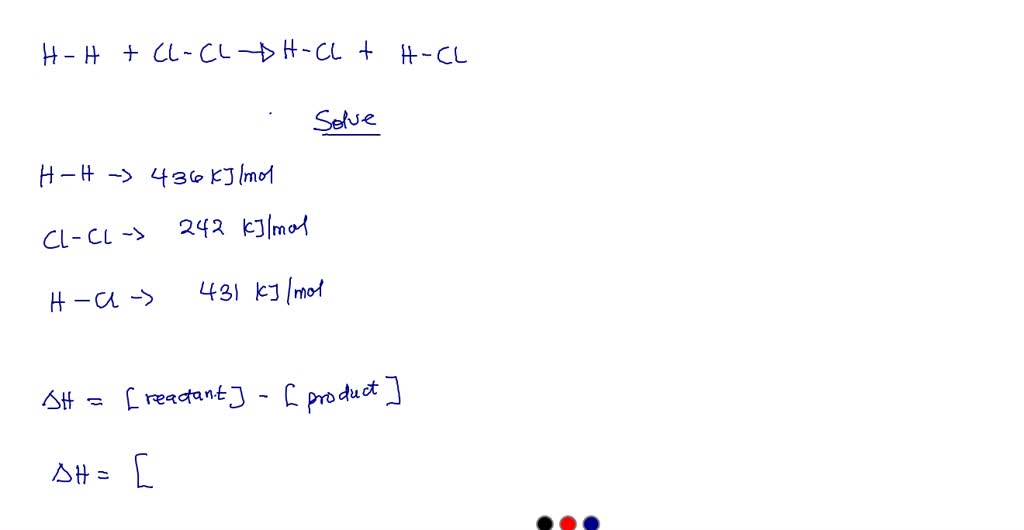 H-H + Cl-Cl → H-Cl + H-Cl
Solve
H-H → 436 KJ/mol
Cl-Cl → 242 KJ/mol
H-Cl → 431 KJ/mol
ΔH = [reactant] - [product]
ΔH = [